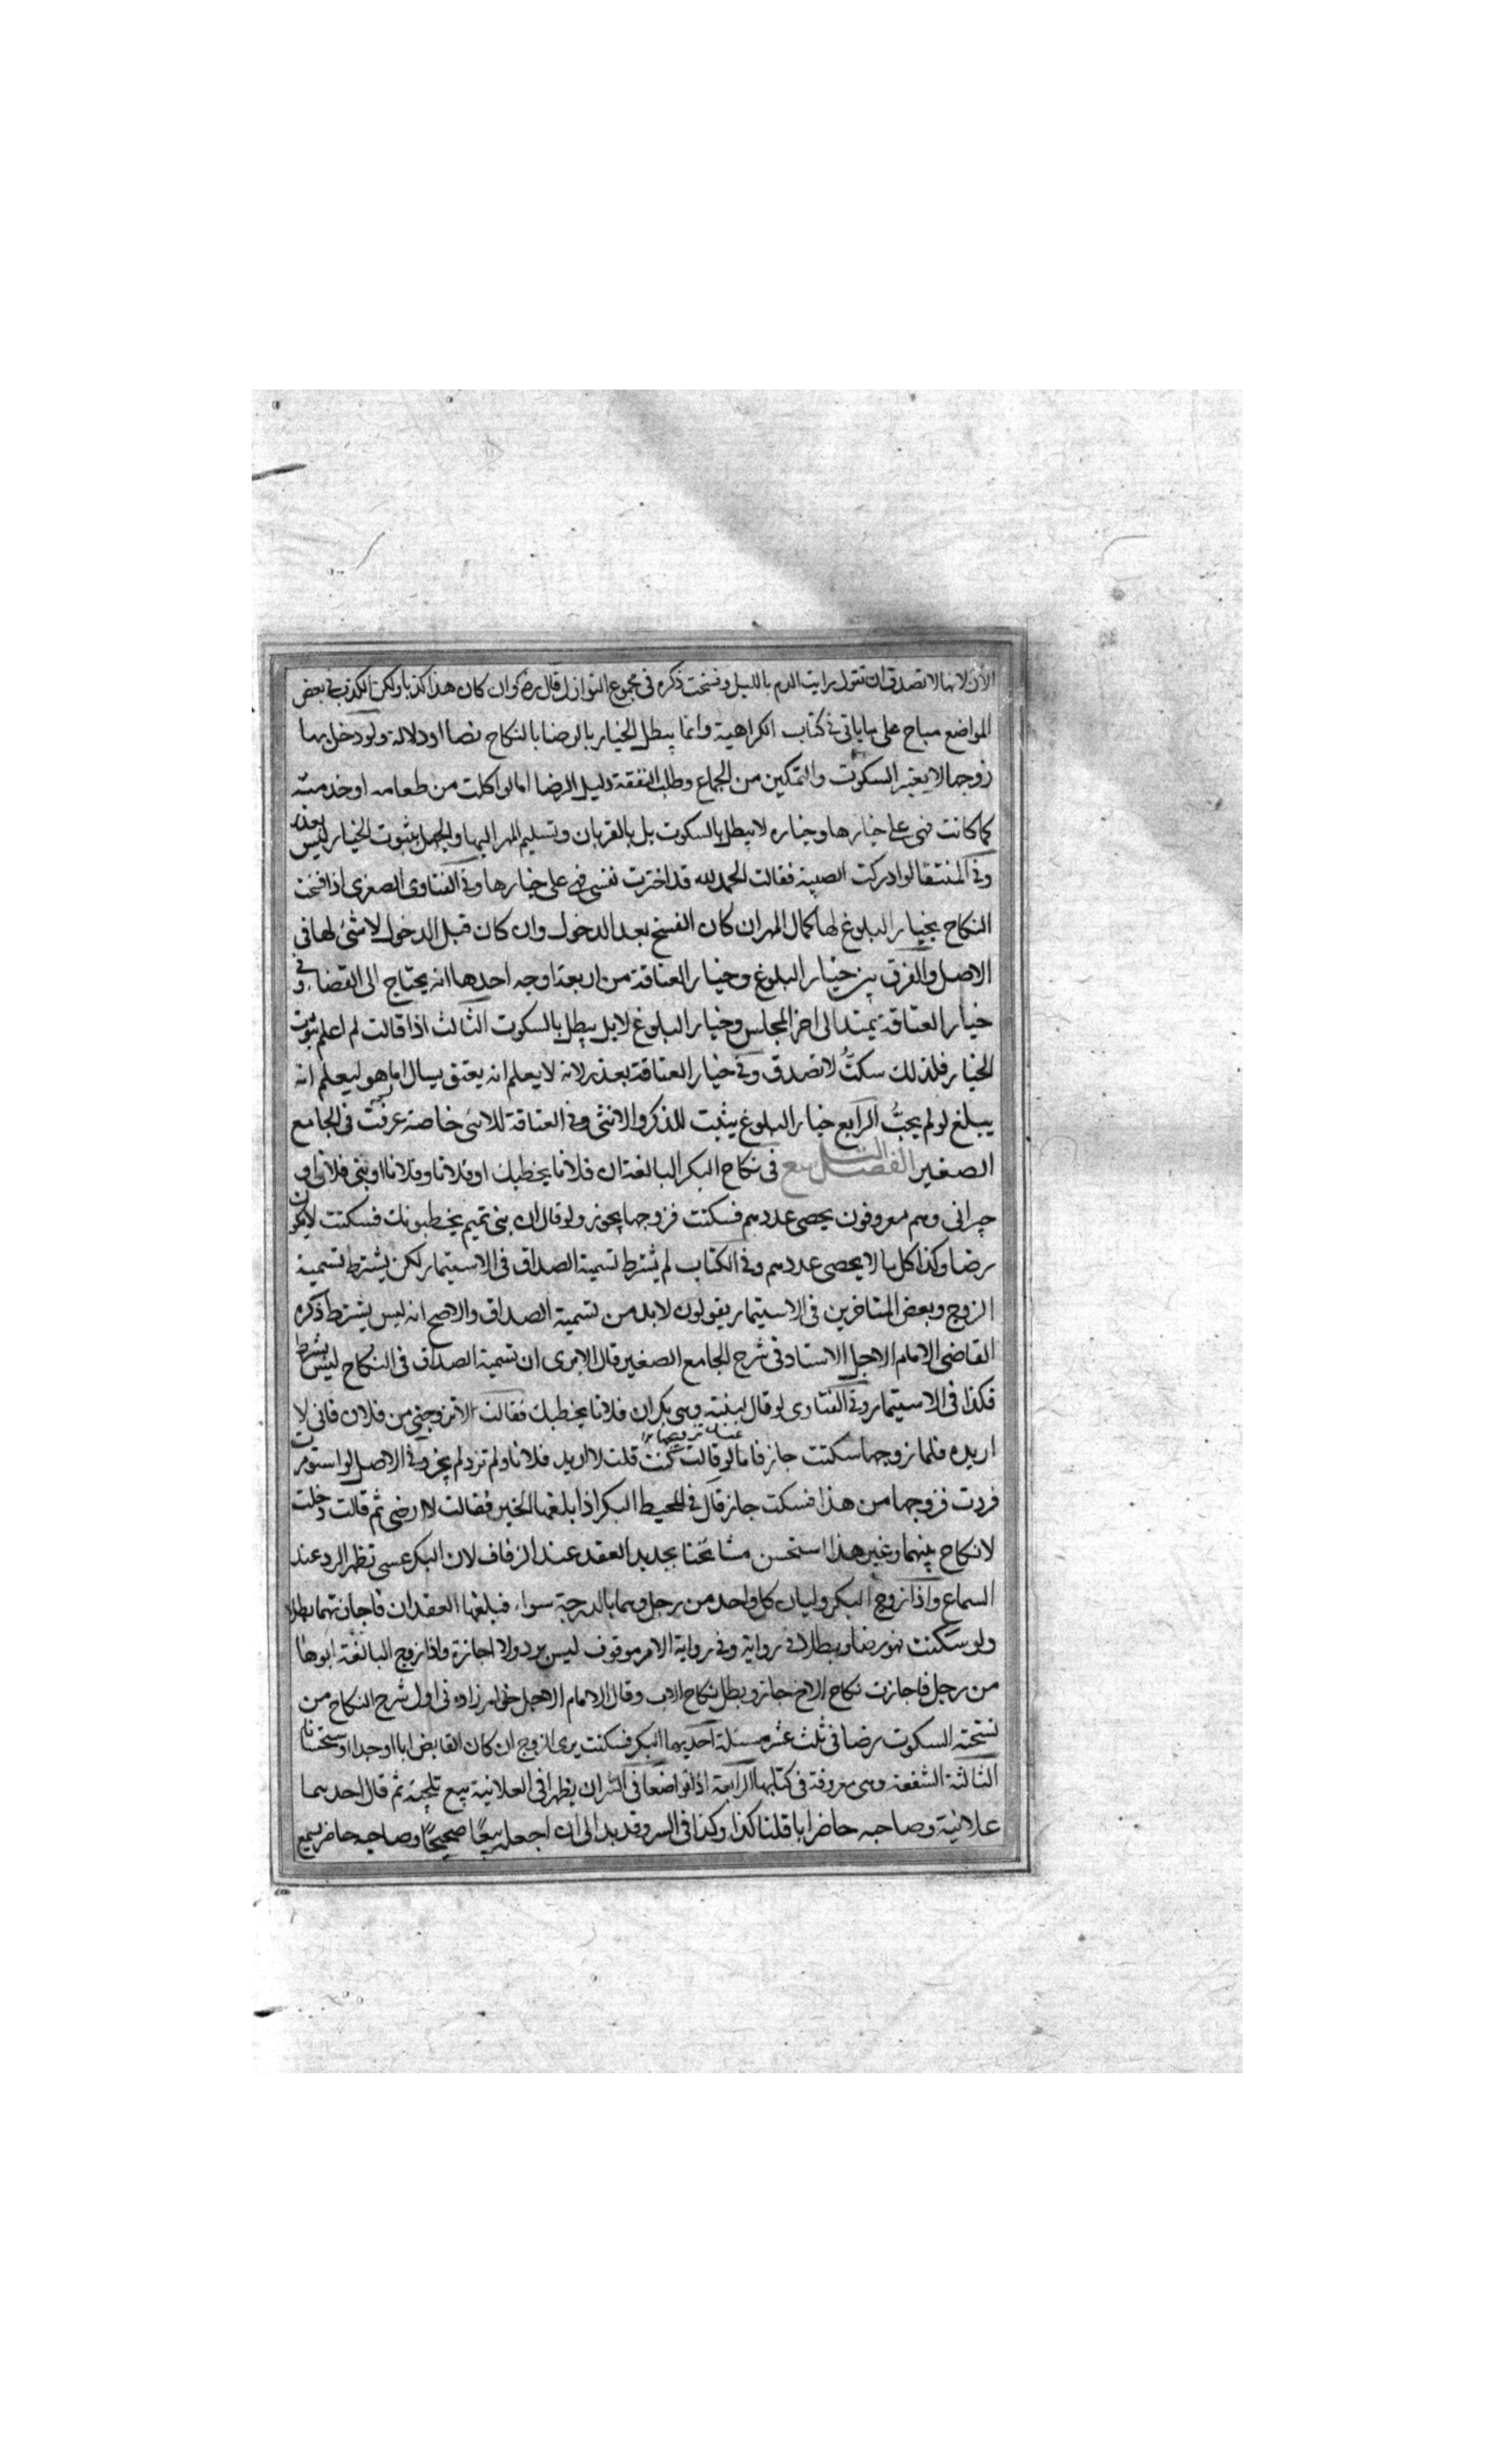 الان لانها لا تصدق ان تقول رايت الدم بالليل وفسخت ذكره في مجموع النوازل قال رح وان كان هذا كذبا ولكن الكذب في بعض
المواضع مباح على ما ياتي في كتاب الكراهية وانما يبطل الخيار بالرضا بالنكاح نصا او دلالة ولو دخل بها
زوجها لا يعتبر السكوت والتمكين من الجماع وطلب النفقة دليل الرضا اما لو اكلت من طعامه او خدمته
كما كانت فهي على خيارها وخياره لا يبطل بالسكوت بل بالقربان وتسليم المهر اليها والجهل بثبوت الخيار ليس بعذر
وفي المنتقا لو ادركت الصبية فقالت الحمد لله قد اخترت نفسي فهي على خيارها وفي الفتاوى الصغرى اذا فسخت
النكاح بخيار البلوغ لها كمال المهر ان كان الفسخ بعد الدخول وان كان قبل الدخول لا شئ لها في
الاصل والفرق بين خيار البلوغ وخيار العتاقة من اربعة اوجه احدها انه يحتاج الى القضاء وفي
خيار العتاقة يمتد الى اخر المجلس وخيار البلوغ لا بل يبطل بالسكوت الثالث اذا قالت لم اعلم بثبوت
الخيار فلذلك سكتُّ لا تصدق وفي خيار العتاقة بعذر لانه لا يعلم انه يعتق يسال اما هو ليعلم انه
يبلغ لو لم يجبُّ الرابع خيار البلوغ يثبت للذكر والانثى وفي العتاقة للانثى خاصة عرفت في الجامع
الصغير الفصل في نكاح البكر البالغة ان فلانا يخطبك او فلانا وفلانا او بني فلان او
جيراني وهم معروفون يحصى عددهم فسكتت فزوجها يجوز ولو قال ان بني تميم يخطبونك فسكتت لا يكون
رضا وكذا كل ما لا يحصى عددهم وفي الكتاب لم يشترط تسمية الصداق في الاستيمار لكن يشترط تسمية
الزوج وبعض المتاخرين في الاستيمار يقولون لا بد من تسمية الصداق والاصح انه ليس بشرط ذكره
القاضي الامام الاجل الاستاد في شرح الجامع الصغير قال الا يرى ان تسمية الصداق في النكاح ليس بشرط
فكذا في الاستيمار وفي الفتاوى لو قال لبنته وهي بكر ان فلانا يخطبك فقالت لا تزوجني من فلان فاني لا
اريده فلما زوجها سكتت جاز فاما لو قالت كنت قلت لا اريد فلانا ولم تزد لم يجز وفي الاصل لو استومرت
فردت فزوجها من هذا فسكت جاز قال في المحيط البكر اذا بلغها الخبر فقالت لا ارضى ثم قالت دخلت
لا نكاح بينهما وعن هذا استحسن مشايخنا تجديد العقد عند الزفاف لان البكر عسى تظهر الرد عند
السماع واذا زوج البكر وليان كل واحد من رجل وهما بالدرجة سواء فبلغها العقدان فاجازتهما بطلا
ولو سكتت فهو رضا ويبطلا في رواية وفي رواية الامر موقوف ليس برد ولا اجازة واذا زوج البالغة ابوها
من رجل فاجازت نكاح الاخ جاز وبطل نكاح الاب وقال الامام الاجل خواهرزاده في اول شرح النكاح من
نسخته السكوت رضا في ثلث عشر مسئلة احديها البكر فسكتت يرى الزوج ان كان القابض ابا او جدا استحسانا
الثالثة الشفعة وهي معروفة في كتابها الرابعة اذا تواضعا في السر ان يظهرا في العلانية بيع تلجية ثم قال احدهما
علانية وصاحبه حاضر انا قلنا كذا وكذا في السر وقد بدا لي ان اجعله بيعًا صحيحًا وصاحبه حاضر يسمع